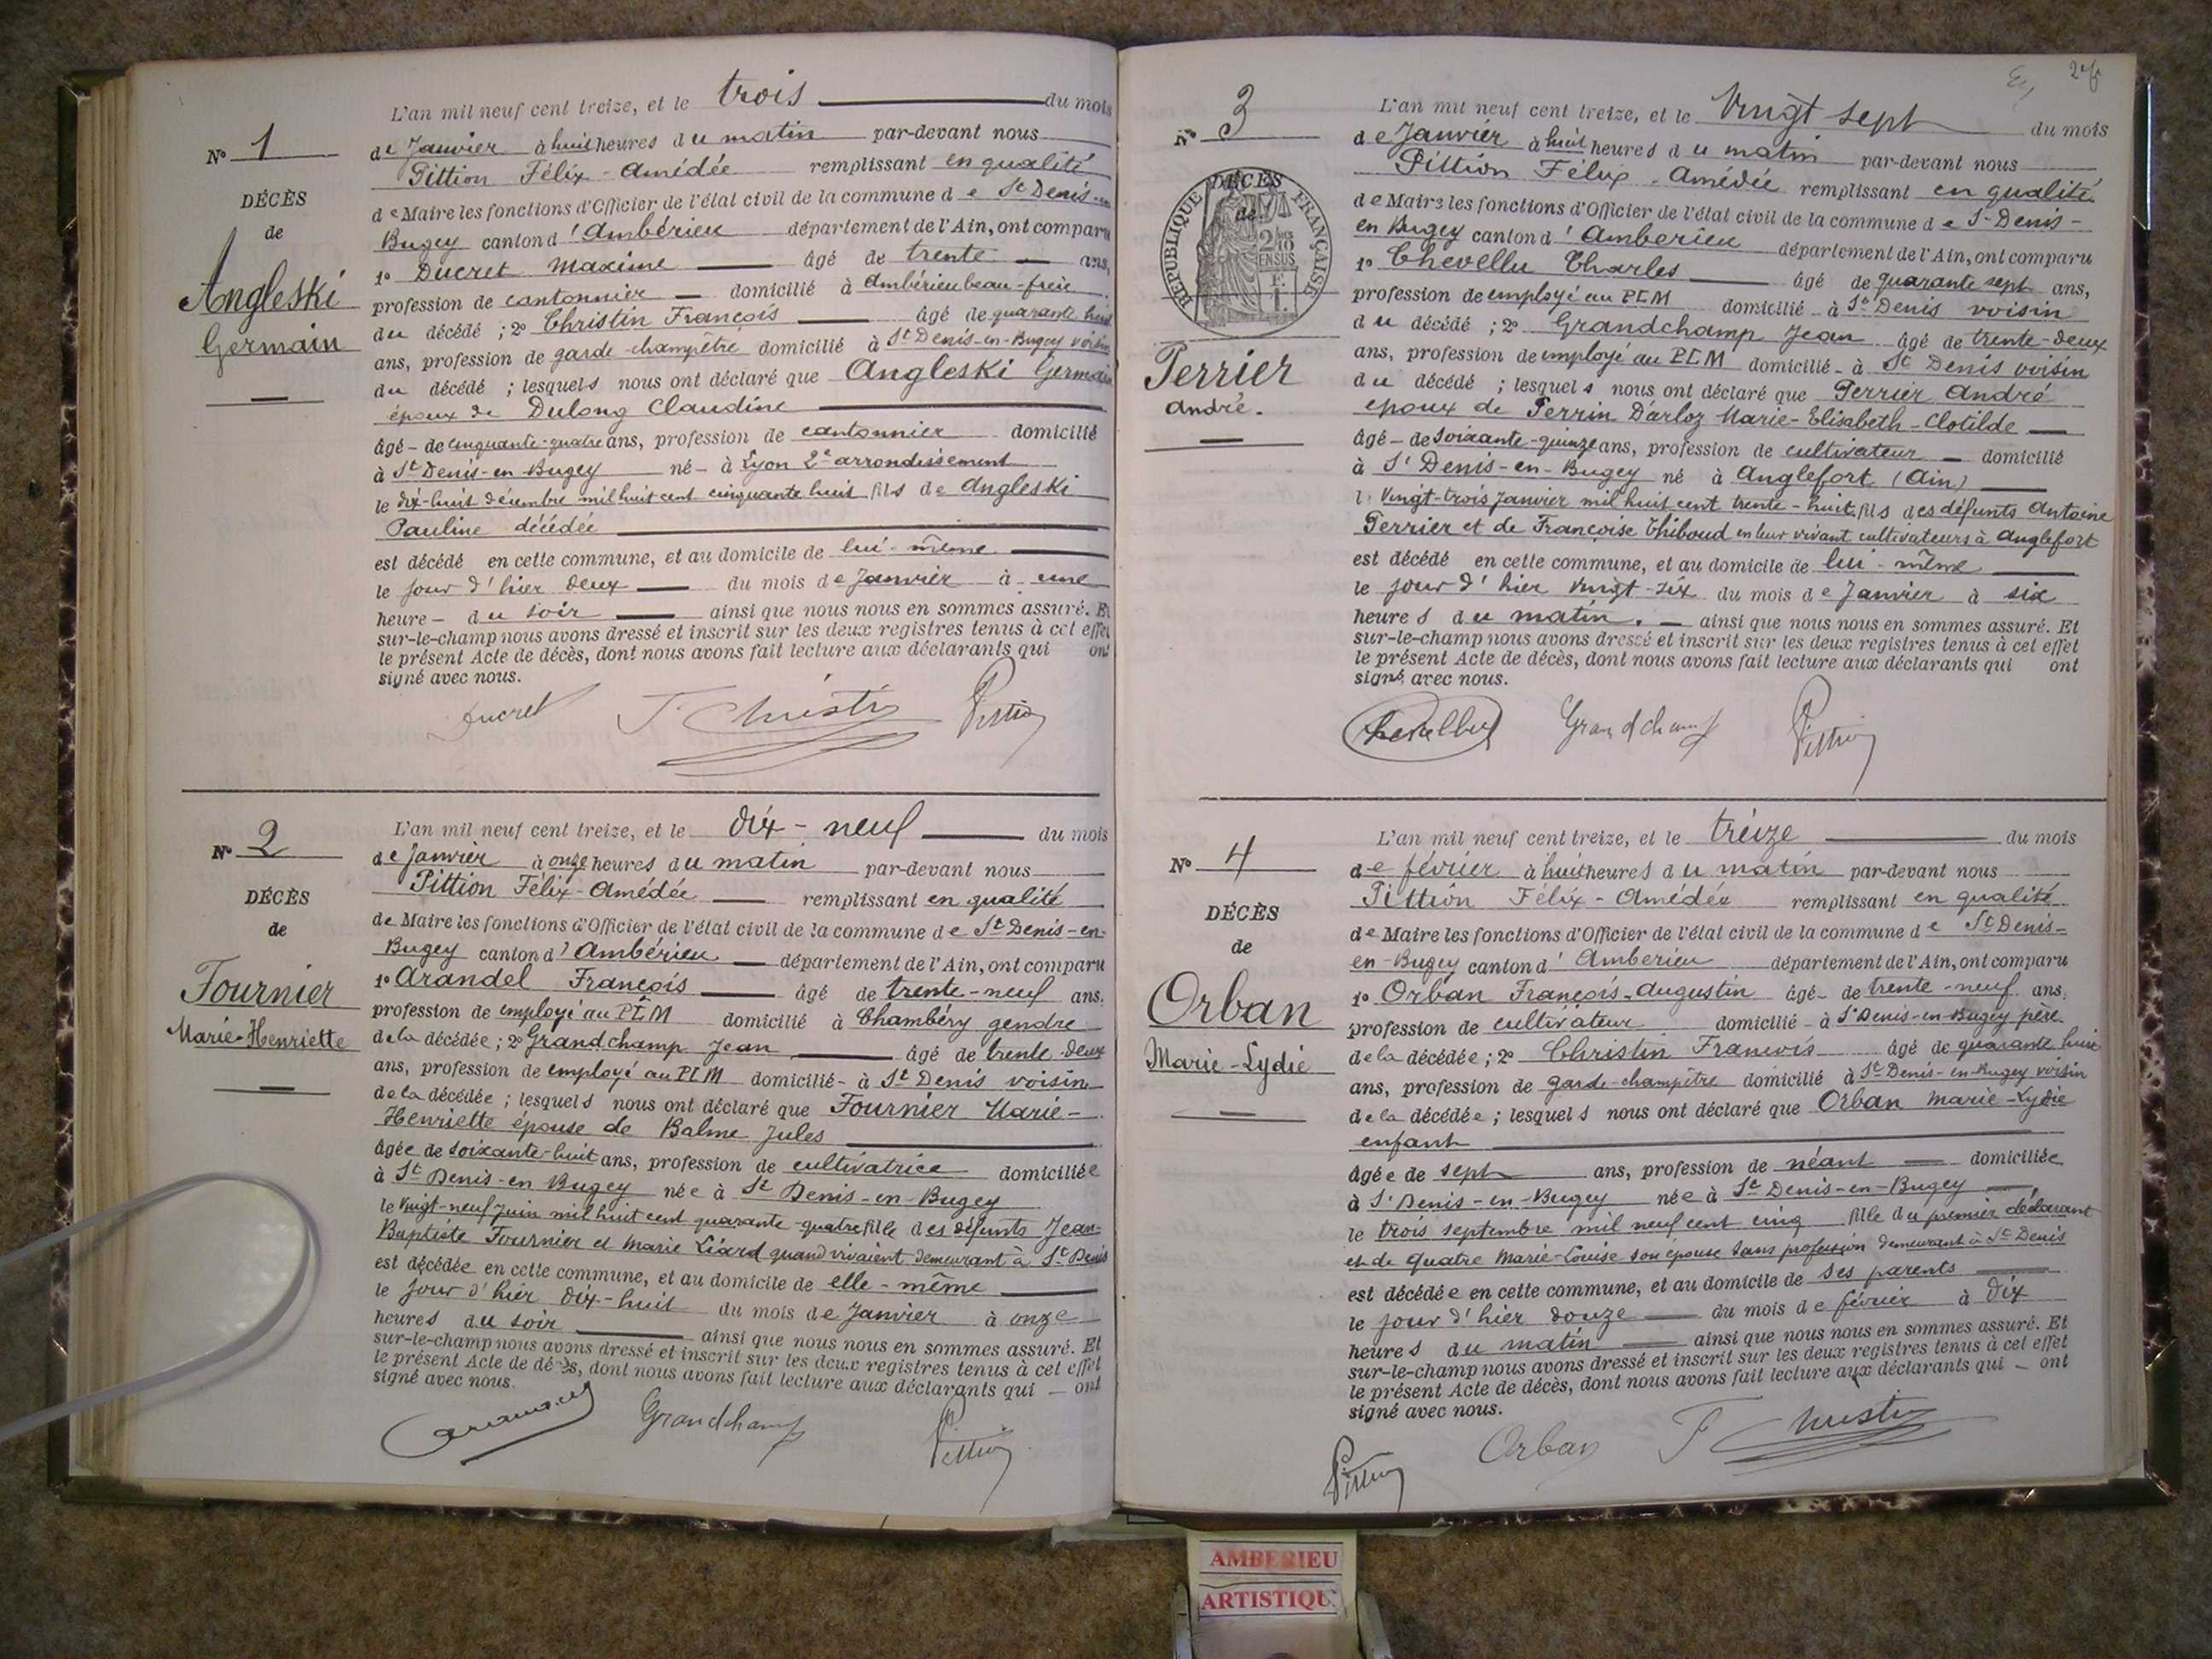 L'an mil neuf cent treize, et le trois du mois
N° 1
de Janvier à huit heures du matin par-devant nous
Pittion Félix-Amédée remplissant en qualité
DÉCÈS
de Maire les fonctions d'Officier de l'état civil de la commune de St Denis-en
de
Bugey canton d'Ambérieu département de l'Ain, ont comparu
1° Ducret Maxime âgé de trente ans,
Angleski
profession de cantonnier domicilié à Ambérieu beau-frère
Germain
du décédé ; 2° Christin François âgé de quarante huit
ans, profession de garde-champêtre domicilié à St Denis-en-Bugey voisin
du décédé ; lesquels nous ont déclaré que Angleski Germain
époux de Dulong Claudine
âgé de cinquante-quatre ans, profession de cantonnier domicilié
à St Denis-en-Bugey né à Lyon 2e arrondissement
le dix-huit décembre mil huit cent cinquante huit fils de Angleski
Pauline décédée
est décédé en cette commune, et au domicile de lui-même
le jour d'hier deux du mois de Janvier à une
heure du soir ainsi que nous nous en sommes assuré. Et
sur-le-champ nous avons dressé et inscrit sur les deux registres tenus à cet effet
le présent Acte de décès, dont nous avons fait lecture aux déclarants qui ont
signé avec nous.
Ducret F Christin Pittion
L'an mil neuf cent treize, et le dix-neuf du mois
N° 2
de Janvier à onze heures du matin par-devant nous
Pittion Félix-Amédée remplissant en qualité
DÉCÈS
de Maire les fonctions d'Officier de l'état civil de la commune de St Denis-en-
de
Bugey canton d'Ambérieu département de l'Ain, ont comparu
Fournier
1° Arandel François âgé de trente-neuf ans,
Marie-Henriette
profession de employé au PLM domicilié à Chambéry gendre
de la décédée ; 2° Grandchamp Jean âgé de trente-deux
ans, profession de employé au PLM domicilié à St Denis voisin
de la décédée ; lesquels nous ont déclaré que Fournier Marie-
Henriette épouse de Balme Jules
âgée de soixante-huit ans, profession de cultivatrice domiciliée
à St Denis-en Bugey née à St Denis-en-Bugey
le vingt-neuf juin mil huit cent quarante-quatre fille des défunts Jean-
Baptiste Fournier et Marie Liard quand vivaient demeurant à St Denis
est décédée en cette commune, et au domicile de elle-même
le jour d'hier dix-huit du mois de Janvier à onze
heures du soir ainsi que nous nous en sommes assuré. Et
sur-le-champ nous avons dressé et inscrit sur les deux registres tenus à cet effet
le présent Acte de décès, dont nous avons fait lecture aux déclarants qui ont
signé avec nous.
Grandchamp Pittion
2e f
L'an mil neuf cent treize, et le Vingt sept du mois
N° 3
de Janvier à huit heures du matin par-devant nous
Pittion Félix-Amédée remplissant en qualité
DÉCÈS
de Maire les fonctions d'Officier de l'état civil de la commune de St-Denis-
de
RÉPUBLIQUE FRANÇAISE
en Bugey canton d'Amberieu département de l'Ain, ont comparu
1° Chevellu Charles âgé de quarante sept ans,
profession de employé au PLM domicilié à St Denis voisin
du décédé ; 2° Grandchamp Jean âgé de trente-deux
Perrier
ans, profession de employé au PLM domicilié à St Denis voisin
André.
du décédé ; lesquels nous ont déclaré que Perrier André
époux de Perrin Darloz Marie-Elisabeth-Clotilde
âgé de soixante-quinze ans, profession de cultivateur domicilié
à St Denis-en-Bugey né à Anglefort (Ain)
le vingt-trois Janvier mil huit cent trente-huit fils des défunts Antoine
Perrier et de Françoise Thiboud en leur vivant cultivateurs à Anglefort
est décédé en cette commune, et au domicile de lui-même
le jour d'hier vingt-six du mois de Janvier à six
heures du matin. ainsi que nous nous en sommes assuré. Et
sur-le-champ nous avons dressé et inscrit sur les deux registres tenus à cet effet
le présent Acte de décès, dont nous avons fait lecture aux déclarants qui ont
signé avec nous.
Chevellu Grandchamp Pittion
L'an mil neuf cent treize, et le treize du mois
N° 4
de février à huit heures du matin par-devant nous
Pittion Félix-Amédée remplissant en qualité
DÉCÈS
de Maire les fonctions d'Officier de l'état civil de la commune de St Denis-
de
en-Bugey canton d'Amberieu département de l'Ain, ont comparu
Orban
1° Orban François-Augustin âgé de trente-neuf ans,
profession de cultivateur domicilié à St Denis-en-Bugey père
Marie-Lydie
de la décédée ; 2° Christin François âgé de quarante huit
ans, profession de garde-champêtre domicilié à St Denis-en-Bugey voisin
de la décédée ; lesquels nous ont déclaré que Orban Marie-Lydie
enfant
âgée de sept ans, profession de néant domiciliée
à St Denis-en-Bugey née à St Denis-en-Bugey
le trois septembre mil neuf cent cinq fille du premier déclarant
et de Quatre Marie-Louise son épouse sans profession demeurant à St Denis
est décédée en cette commune, et au domicile de ses parents
le jour d'hier douze du mois de février à dix
heures du matin ainsi que nous nous en sommes assuré. Et
sur-le-champ nous avons dressé et inscrit sur les deux registres tenus à cet effet
le présent Acte de décès, dont nous avons fait lecture aux déclarants qui ont
signé avec nous.
Pittion Orban F Christin
AMBERIEU
ARTISTIQU